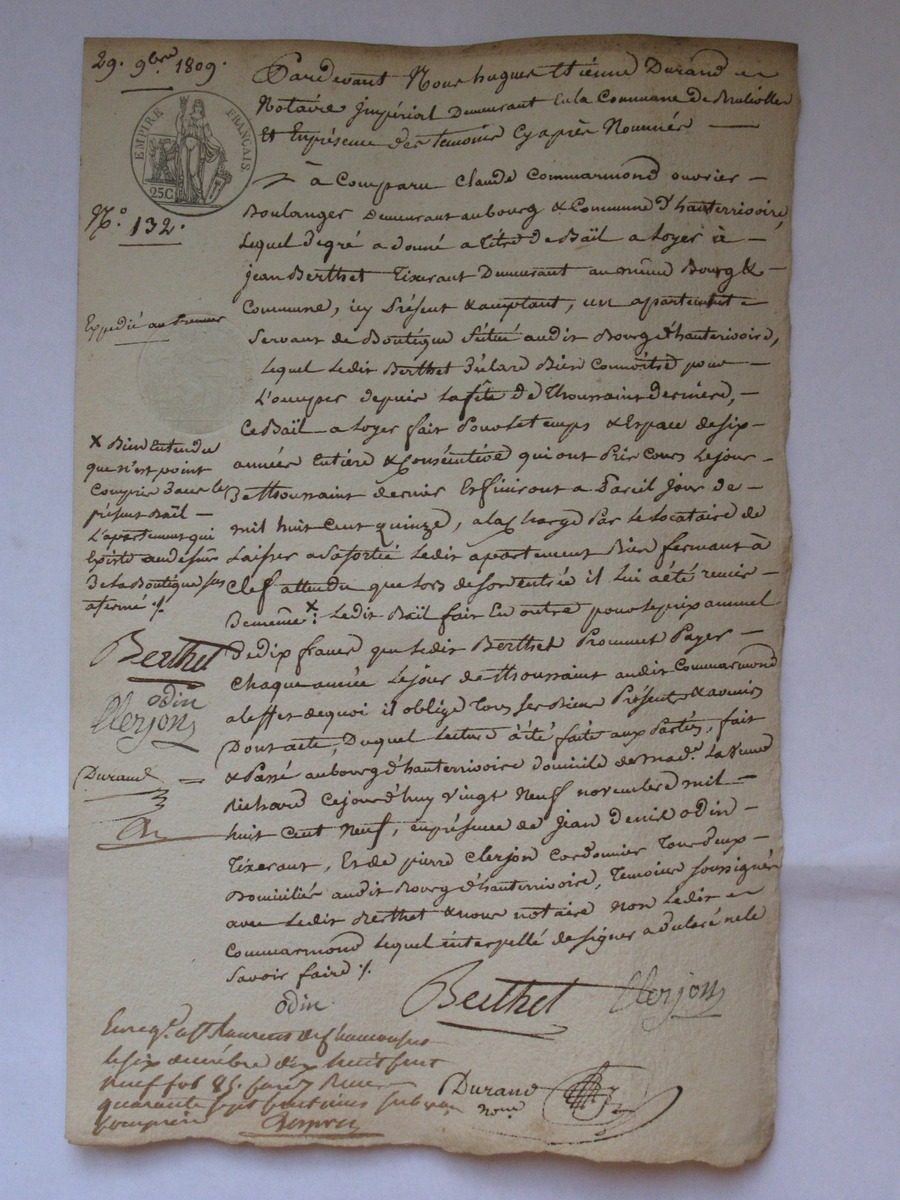 29. 9bre 1809.
EMPIRE FRANÇAIS
25C
N.o 132.
Expedié au Preneur
Pardevant Nous hugues Etiénne Durand
Notaire Jmpérial Demeurant En la Commune de Brulioles
Et Enprésence des temoins Cyaprès Nommés
à Comparu Claude Commarmond ouvrier
Boulanger Demeurant au bourg & Commune D'hauterivoire,
Lequel degré a donné a titre de Baïl a loyer à
jean Berthet tixerant Demeurant au même Bourg &
Commune, icy Présent & acceptant, un apartement
Servant de Boutique Situé audit Bourg d'hauterivoire,
Lequel Ledit Berthet déclare Bien Connoître pour
L'occuper depuis La fête de Thoussaint derniére,
Ce Baïl a loyer fait Pour Le temps & Espace de six
année Entiére & Consécutive qui ont Pris Cours Le jour
de thoussaint dernier Et finiront a Pareil jour de
mil huit Cent quinze, a la Charge Par Le Locataire de
Laisser a Sa sortié Ledit apartement Bien fermant à
Clef attendu que Lors de Son entrée il Lui a été remis
De même X: Ledit Baïl fait En outre pour Le prix annuel
De dix francs que Ledit Berthet Prommet Payer
Chaque année Le jour de thoussaint audit Commarmond
a L'effet de quoi il oblige tous Ses Biens Présents & avenirs
Dont acte, Duquel Lecture à été faite aux Parties, fait
& Passé au bourg d'hauterivoire domicile de mad.e La Veuve
Richard Cejourd'huy vingt Neuf novembre mil
huit Cent Neuf, en présence de jean denis odin
tixerant, Et de pierre Clerjon Cordonnier tous deux
Domiciliés audit Bourg d'hauterivoire, temoins Soussignés
avec Ledit Berthet & nous notaire non Ledit
Commarmond Lequel interpellé de signer a déclaré ne le
Savoir faire /.
X Bien Entendu
que n'est point
Compris dans le
présent Baïl
L'apartement qui
Existe au dessus
De La Boutique
a fermé /.
Berthet
odin
Clerjon
Durand
odin
Berthet
Clerjon
Durand
no.re
Enreg.é à St Laurent de Chamousset
le six decembre dix huit cent
neuf fol 85
quarante sept centimes subvon
comprise